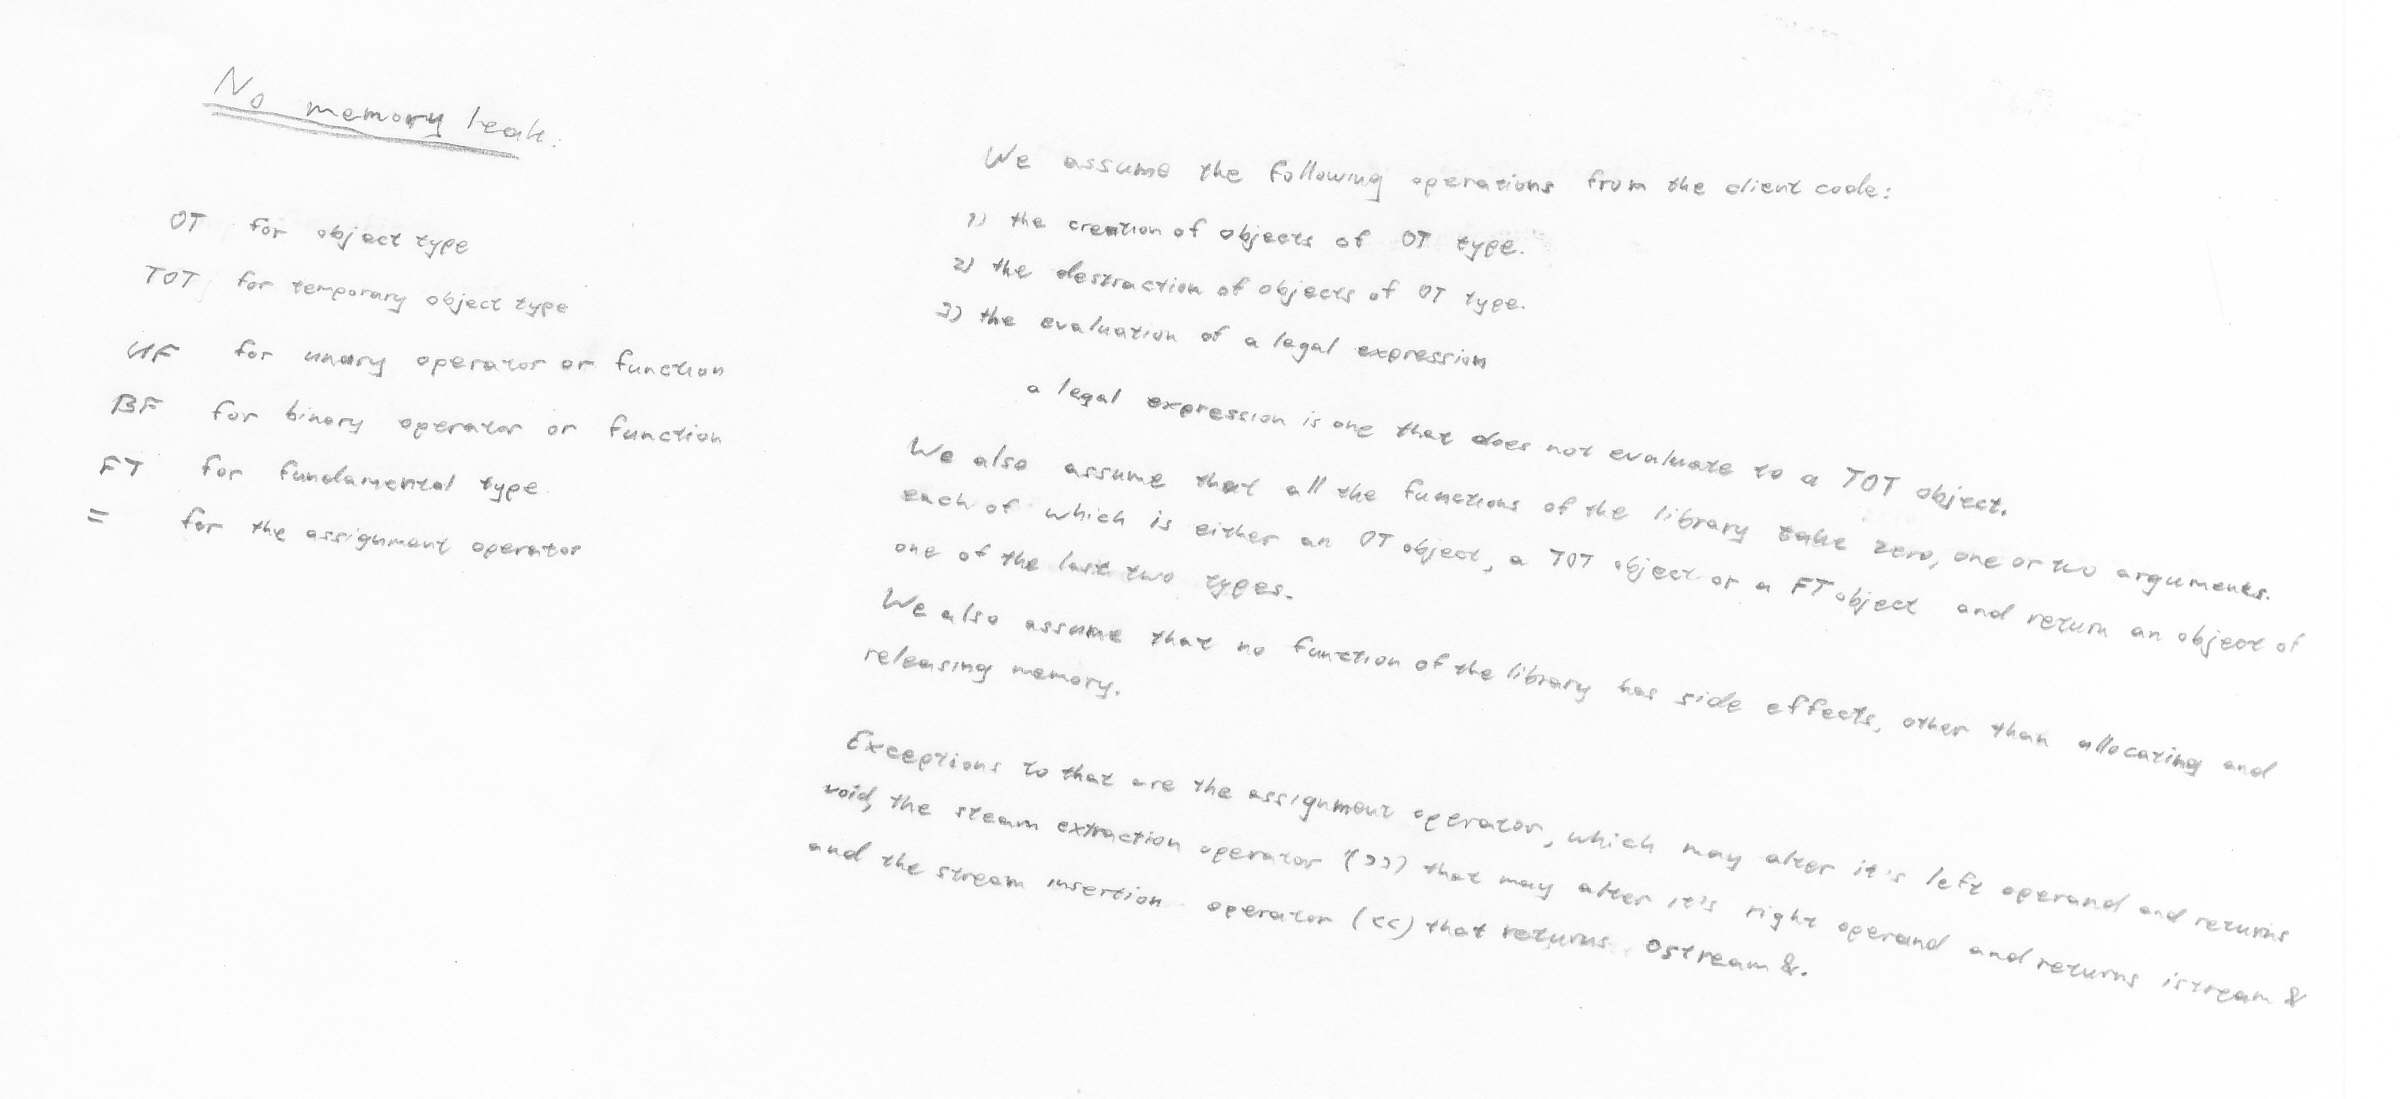 No memory leak.
OT for object type
TOT for temporary object type
UF for unary operator or function
BF for binary operator or function
FT for fundamental type.
= for the assignment operator
We assume the following operations from the client code:
1) the creation of objects of OT type.
2) the destraction of objects of OT type.
3) the evaluation of a legal expression
a legal expression is one that does not evaluate to a TOT object.
We also assume that all the functions of the library take zero, one or two arguments.
each of which is either an OT object, a TOT object or a FT object and return an object of
one of the last two types.
We also assume that no function of the library has side effects, other than allocating and
releasing memory.
Exceptions to that are the assignment operator, which may alter it's left operand and returns
void, the steam extraction operator (>>) that may alter it's right operand and returns istream &
and the stream insertion operator (<<) that returns ostream &.